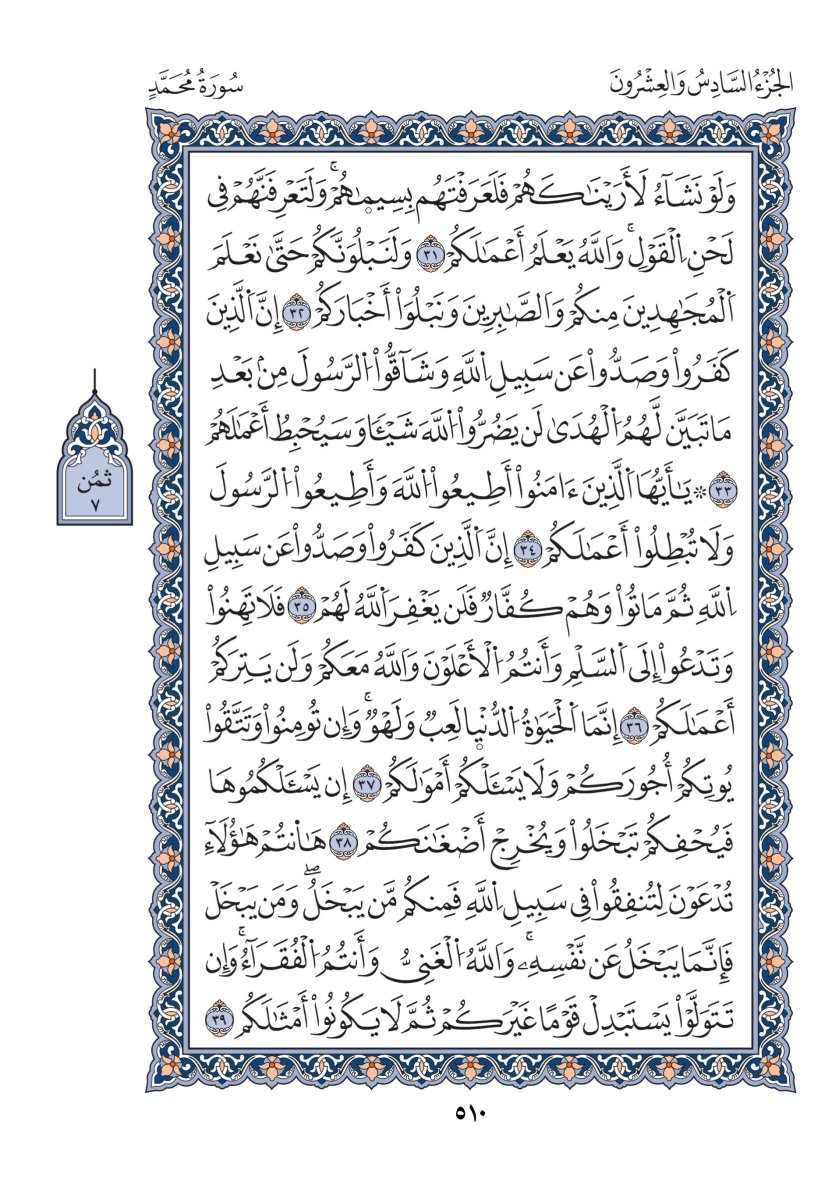 الجُزْءُ السَّادِسُ وَالعِشْرُونَ
سُورَةُ مُحَمَّدٍ
وَلَوْ نَشَآءُ لَأَرَيْنَٰكَهُمْ فَلَعَرَفْتَهُم بِسِيمَٰهُمْۚ وَلَتَعْرِفَنَّهُمْ فِي
لَحْنِ اِ۬لْقَوْلِۚ وَاللَّهُ يَعْلَمُ أَعْمَٰلَكُمْ ٣١ وَلَنَبْلُوَنَّكُمْ حَتَّىٰ نَعْلَمَ
اَ۬لْمُجَٰهِدِينَ مِنكُمْ وَالصَّٰبِرِينَ وَنَبْلُوَاْ أَخْبَارَكُمْ ٣٢ إِنَّ اَ۬لَّذِينَ
كَفَرُواْ وَصَدُّواْ عَن سَبِيلِ اِ۬للَّهِ وَشَآقُّواْ اُ۬لرَّسُولَ مِنۢ بَعْدِ
مَا تَبَيَّنَ لَهُمُ اُ۬لْهُدَىٰ لَن يَضُرُّواْ اُ۬للَّهَ شَيْـٔٗا وَسَيُحْبِطُ أَعْمَٰلَهُمْ
٣٣ ۞ يَٰٓأَيُّهَا اَ۬لَّذِينَ ءَامَنُواْ أَطِيعُواْ اُ۬للَّهَ وَأَطِيعُواْ اُ۬لرَّسُولَ
ثمُن
٧
وَلَا تُبْطِلُواْ أَعْمَٰلَكُمْ ٣٤ إِنَّ اَ۬لَّذِينَ كَفَرُواْ وَصَدُّواْ عَن سَبِيلِ
اِ۬للَّهِ ثُمَّ مَاتُواْ وَهُمْ كُفَّارٞ فَلَن يَغْفِرَ اَ۬للَّهُ لَهُمْ ٣٥ فَلَا تَهِنُواْ
وَتَدْعُواْ إِلَى اَ۬لسَّلْمِ وَأَنتُمُ اُ۬لْأَعْلَوْنَ وَاللَّهُ مَعَكُمْ وَلَن يَتِرَكُمْ
أَعْمَٰلَكُمْ ٣٦ إِنَّمَا اَ۬لْحَيَوٰةُ اُ۬لدُّنْيَا لَعِبٞ وَلَهْوٞۚ وَإِن تُومِنُواْ وَتَتَّقُواْ
يُوتِكُمْ أُجُورَكُمْ وَلَا يَسْـَٔلْكُمْ أَمْوَٰلَكُمْ ٣٧ إِن يَسْـَٔلْكُمُوهَا
فَيُحْفِكُمْ تَبْخَلُواْ وَيُخْرِجْ أَضْغَٰنَكُمْ ٣٨ هَٰأَنتُمْ هَٰؤُلَآءِ
تُدْعَوْنَ لِتُنفِقُواْ فِي سَبِيلِ اِ۬للَّهِ فَمِنكُم مَّن يَبْخَلُۖ وَمَن يَبْخَلْ
فَإِنَّمَا يَبْخَلُ عَن نَّفْسِهِۦۚ وَاللَّهُ اُ۬لْغَنِيُّ وَأَنتُمُ اُ۬لْفُقَرَآءُۚ وَإِن
تَتَوَلَّوْاْ يَسْتَبْدِلْ قَوْمًا غَيْرَكُمْ ثُمَّ لَا يَكُونُواْ أَمْثَٰلَكُمْ ٣٩
٥١٠